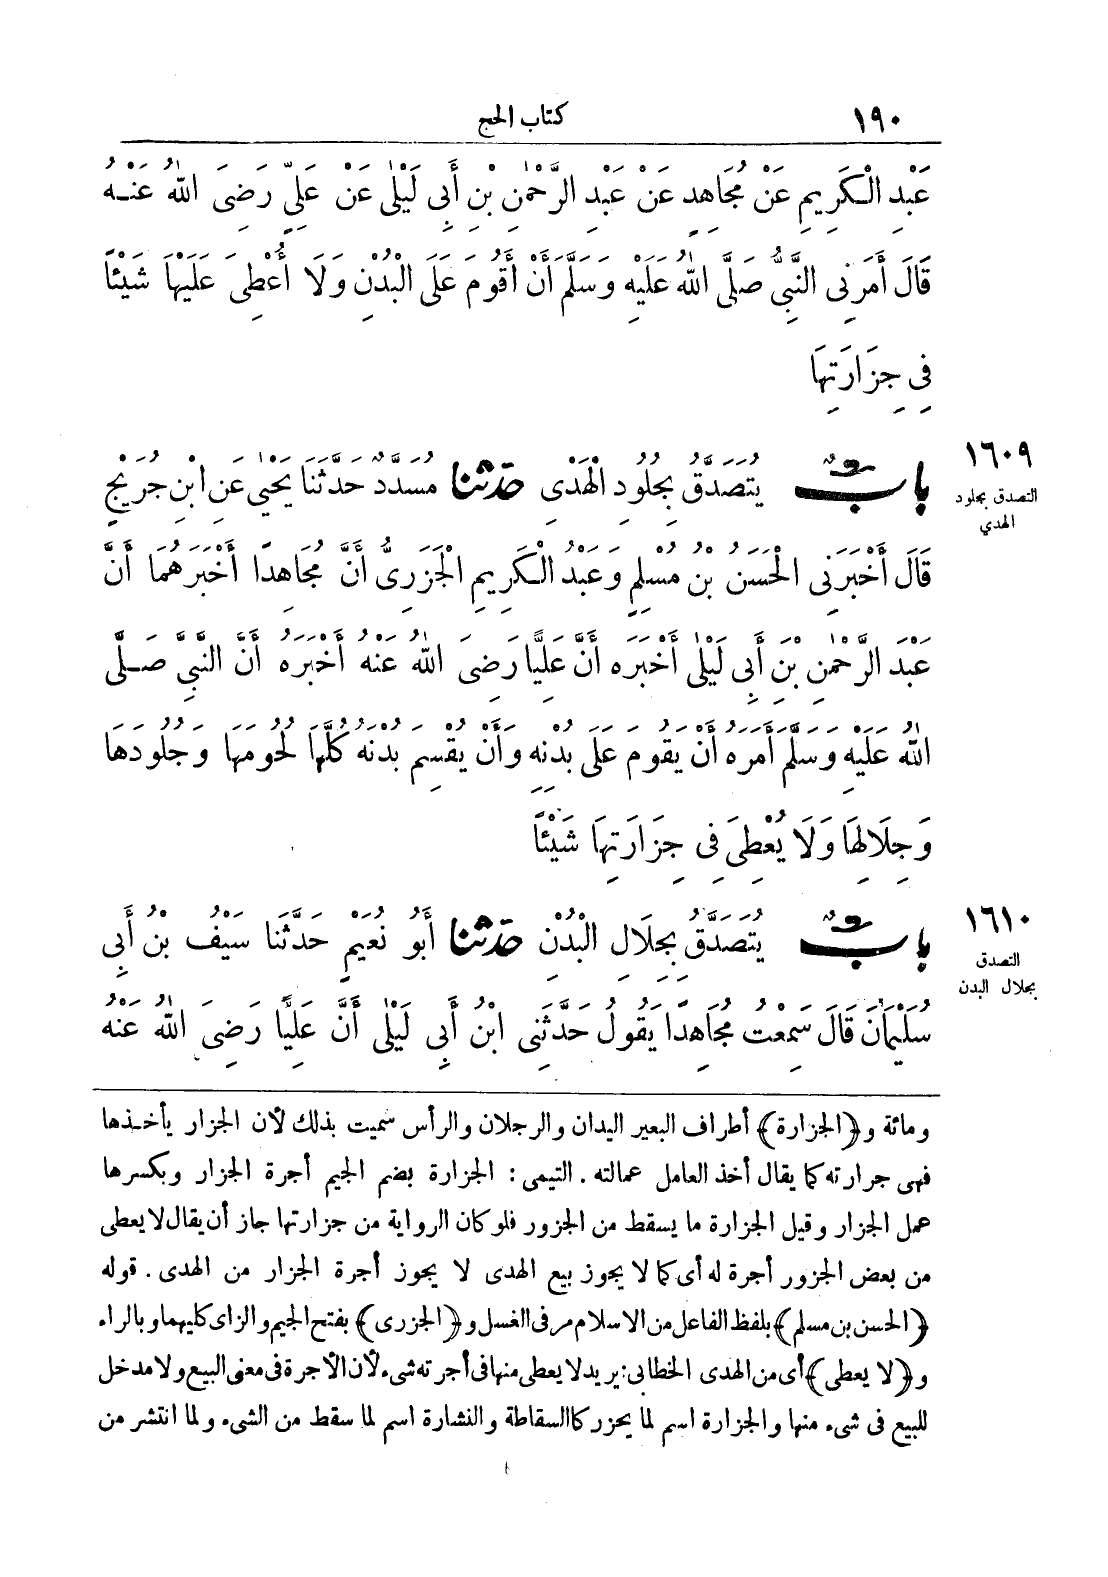 ١٩٠
كتاب الحج
عَبْدِ الْكَرِيمِ عَنْ مُجَاهِدٍ عَنْ عَبْدِ الرَّحْمٰنِ بْنِ أَبِى لَيْلٰى عَنْ عَلِيٍّ رَضِىَ اللّٰهُ عَنْهُ
قَالَ أَمَرَنِى النَّبِىُّ صَلَّى اللّٰهُ عَلَيْهِ وَسَلَّمَ أَنْ أَقُومَ عَلَى الْبُدْنِ وَلَا أُعْطِىَ عَلَيْهَا شَيْئًا
فِى جِزَارَتِهَا
١٦٠٩
التصدق بجلود
الهدي
بابٌ يُتَصَدَّقُ بِجُلُودِ الْهَدْىِ حدثنا مُسَدَّدٌ حَدَّثَنَا يَحْيٰى عَنِ ابْنِ جُرَيْجٍ
قَالَ أَخْبَرَنِى الْحَسَنُ بْنُ مُسْلِمٍ وَعَبْدُ الْكَرِيمِ الْجَزَرِىُّ أَنَّ مُجَاهِدًا أَخْبَرَهُمَا أَنَّ
عَبْدَ الرَّحْمٰنِ بْنَ أَبِى لَيْلٰى أَخْبَرَهُ أَنَّ عَلِيًّا رَضِىَ اللّٰهُ عَنْهُ أَخْبَرَهُ أَنَّ النَّبِىَّ صَلَّى
اللّٰهُ عَلَيْهِ وَسَلَّمَ أَمَرَهُ أَنْ يَقُومَ عَلَى بُدْنِهِ وَأَنْ يُقْسِمَ بُدْنَهُ كُلَّهَا لُحُومَهَا وَجُلُودَهَا
وَجِلَالِهَا وَلَا يُعْطِىَ فِى جِزَارَتِهَا شَيْئًا
١٦١٠
التصدق
بجلال البدن
بابٌ يُتَصَدَّقُ بِجِلَالِ الْبُدْنِ حدثنا أَبُو نُعَيْمٍ حَدَّثَنَا سَيْفُ بْنُ أَبِى
سُلَيْمَانَ قَالَ سَمِعْتُ مُجَاهِدًا يَقُولُ حَدَّثَنِى ابْنُ أَبِى لَيْلٰى أَنَّ عَلِيًّا رَضِىَ اللّٰهُ عَنْهُ
ومائة و﴿الجزارة﴾ أطراف البعير اليدان والرجلان والرأس سميت بذلك لأن الجزار يأخذها
فهى جرارته كما يقال أخذ العامل عمالته . التيمى : الجزارة بضم الجيم أجرة الجزار وبكسرها
عمل الجزار وقيل الجزارة ما يسقط من الجزور فلو كان الرواية من جزارتها جاز أن يقال لا يعطى
من بعض الجزور أجرة له أى كما لا يجوز بيع الهدى لا يجوز أجرة الجزار من الهدى . قوله
﴿الحسن بن مسلم﴾ بلفظ الفاعل من الاسلام مر فى الغسل و﴿الجزرى﴾ بفتح الجيم والزاى كليهما وبالراء
و﴿لا يعطى﴾ أى من الهدى الخطابى: يريد لا يعطى منها فى أجرته شىء لأن الأجرة فى معنى البيع ولا مدخل
للبيع فى شىء منها والجزارة اسم لما يجزر كالسقاطة والنشارة اسم لما سقط من الشىء ولما انتشر من